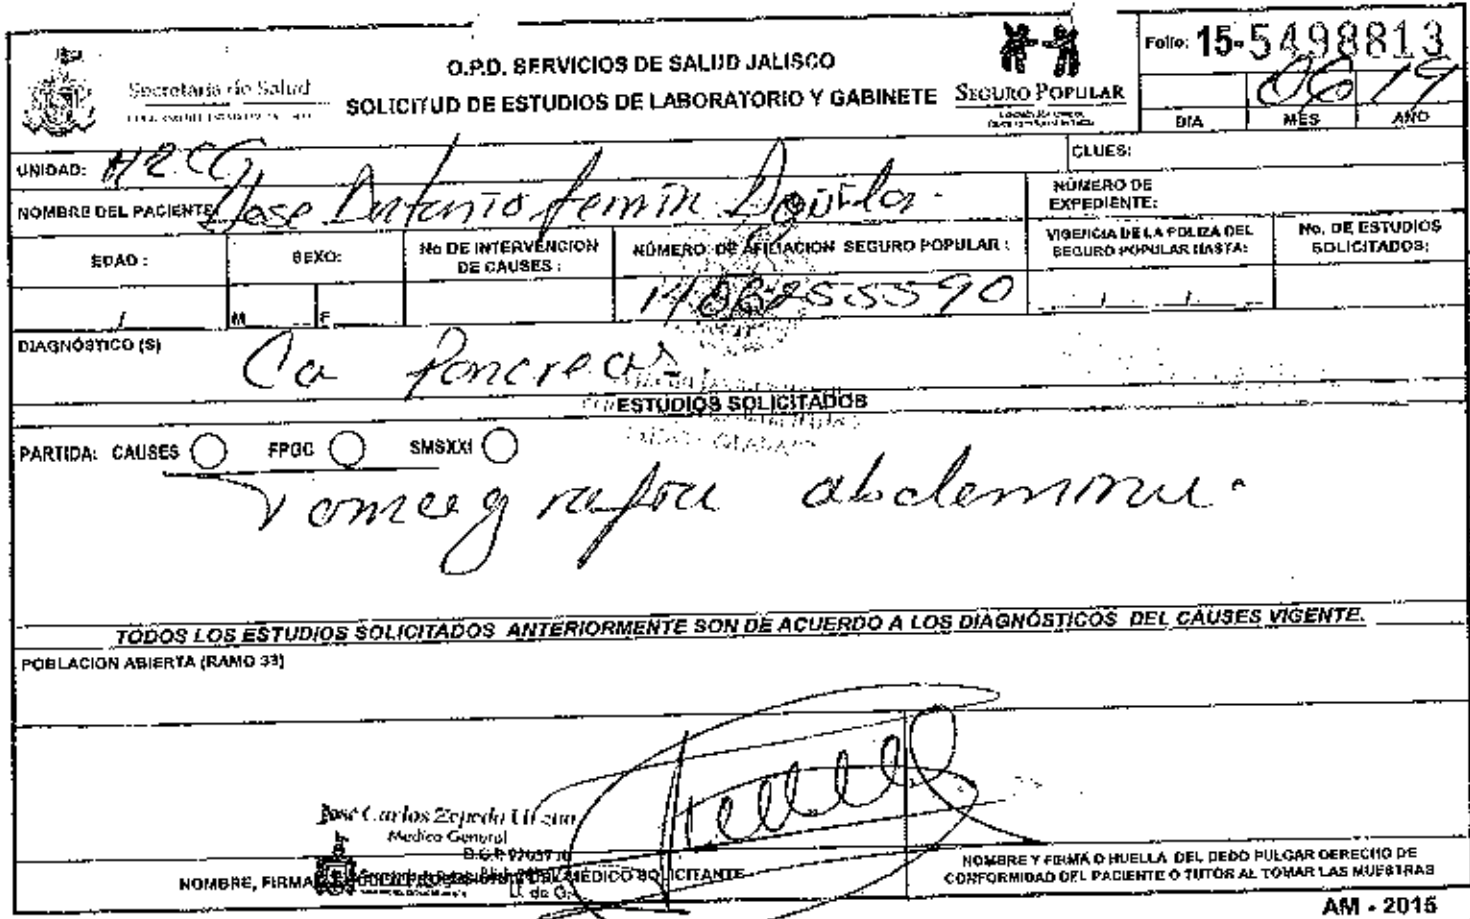 Secretaría de Salud
O.P.D. SERVICIOS DE SALUD JALISCO
SOLICITUD DE ESTUDIOS DE LABORATORIO Y GABINETE
SEGURO POPULAR
Folio: 15-5498813
06 19
DIA MES AÑO
UNIDAD: H2CG
CLUES:
NOMBRE DEL PACIENTE Jose Antonio
NÚMERO DE
EXPEDIENTE:
EDAD :
SEXO:
No DE INTERVENCION
DE CAUSES :
NÚMERO DE AFILIACION SEGURO POPULAR :
VIGENCIA DE LA POLIZA DEL
SEGURO POPULAR HASTA:
No. DE ESTUDIOS
SOLICITADOS:
M F
DIAGNÓSTICO (S)
Ca Pancreas
ESTUDIOS SOLICITADOS
PARTIDA: CAUSES FPGC SMSXXI
abdomina
TODOS LOS ESTUDIOS SOLICITADOS ANTERIORMENTE SON DE ACUERDO A LOS DIAGNÓSTICOS DEL CAUSES VIGENTE.
POBLACION ABIERTA (RAMO 33)
José Carlos Zepeda
Medico General
NOMBRE, FIRMA MÉDICO SOLICITANTE
NOMBRE Y FIRMA O HUELLA DEL DEDO PULGAR DERECHO DE
CONFORMIDAD DEL PACIENTE O TUTOR AL TOMAR LAS MUESTRAS
AM - 2015